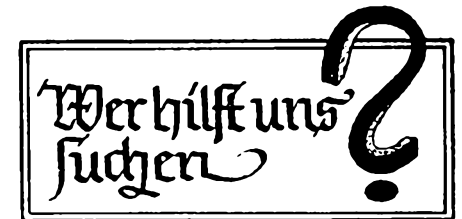 Wer hilft uns
suchen?